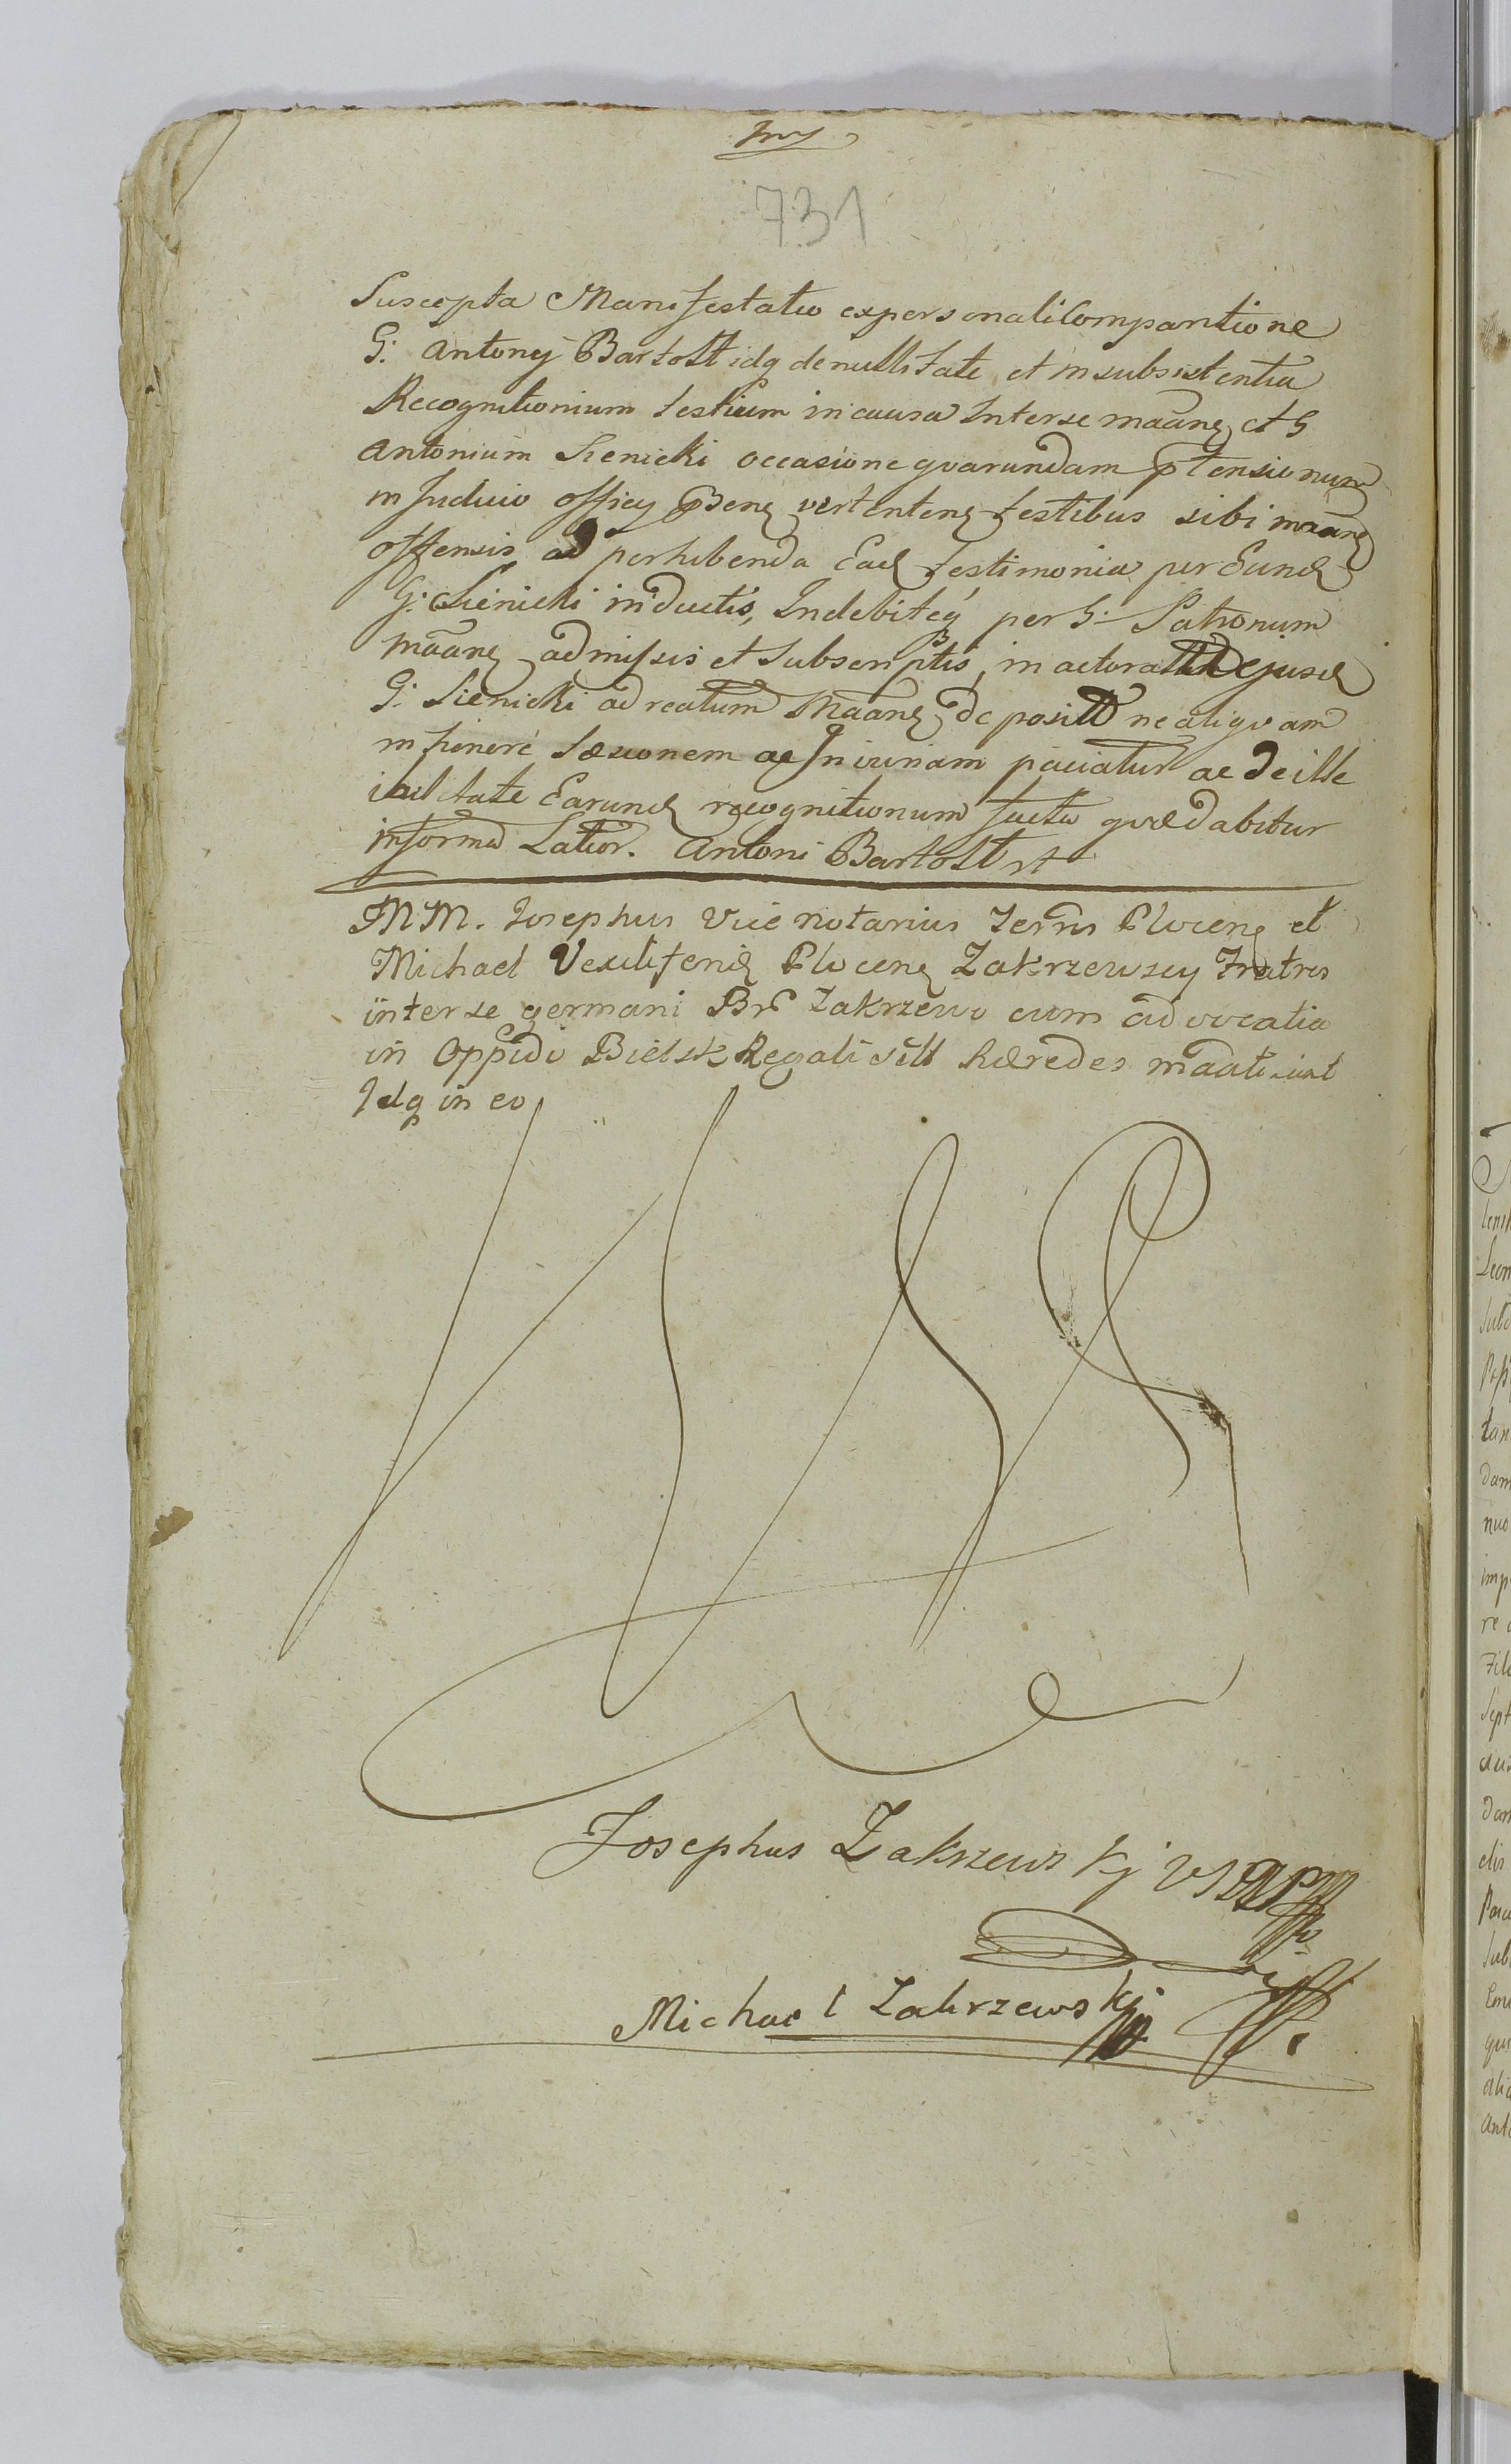 731
Suscepta Manifestatio expersonali Compantione
G: Antony Bartoltt idq de nullitate et insubsistentia
Recognitionum testium in causa Inter se maãng et G
Antonium Sienicki occasione qvarundam ptensionum
in Judicio officy verténteng testibus sibi maãng
offensis ad perhibenda Ead testimonia per Eund
G: Sienicki inductis, Indebiteq per G: Patronum
maãng admissis et Subscriptis, in ejusd
G: Sienicki ad reatum Maãng de ne aliqvam
in honore Læsionem ac Injuriam paciatur ac de ille
Earund recognitionum qvæ dabitur
informa Latior. Antoni Bartoltt
MM. Josephus Vice notarius Terris Plocens et
Michael Vexiliferid Plocens Zakrzewscy Fratres
inter se germani Br Zakrzewo cum advocatia
in Oppido Bielsk Regali hæredes
Idq in eo
Josephus Zakrzewskj
Michael Zakrzewskj